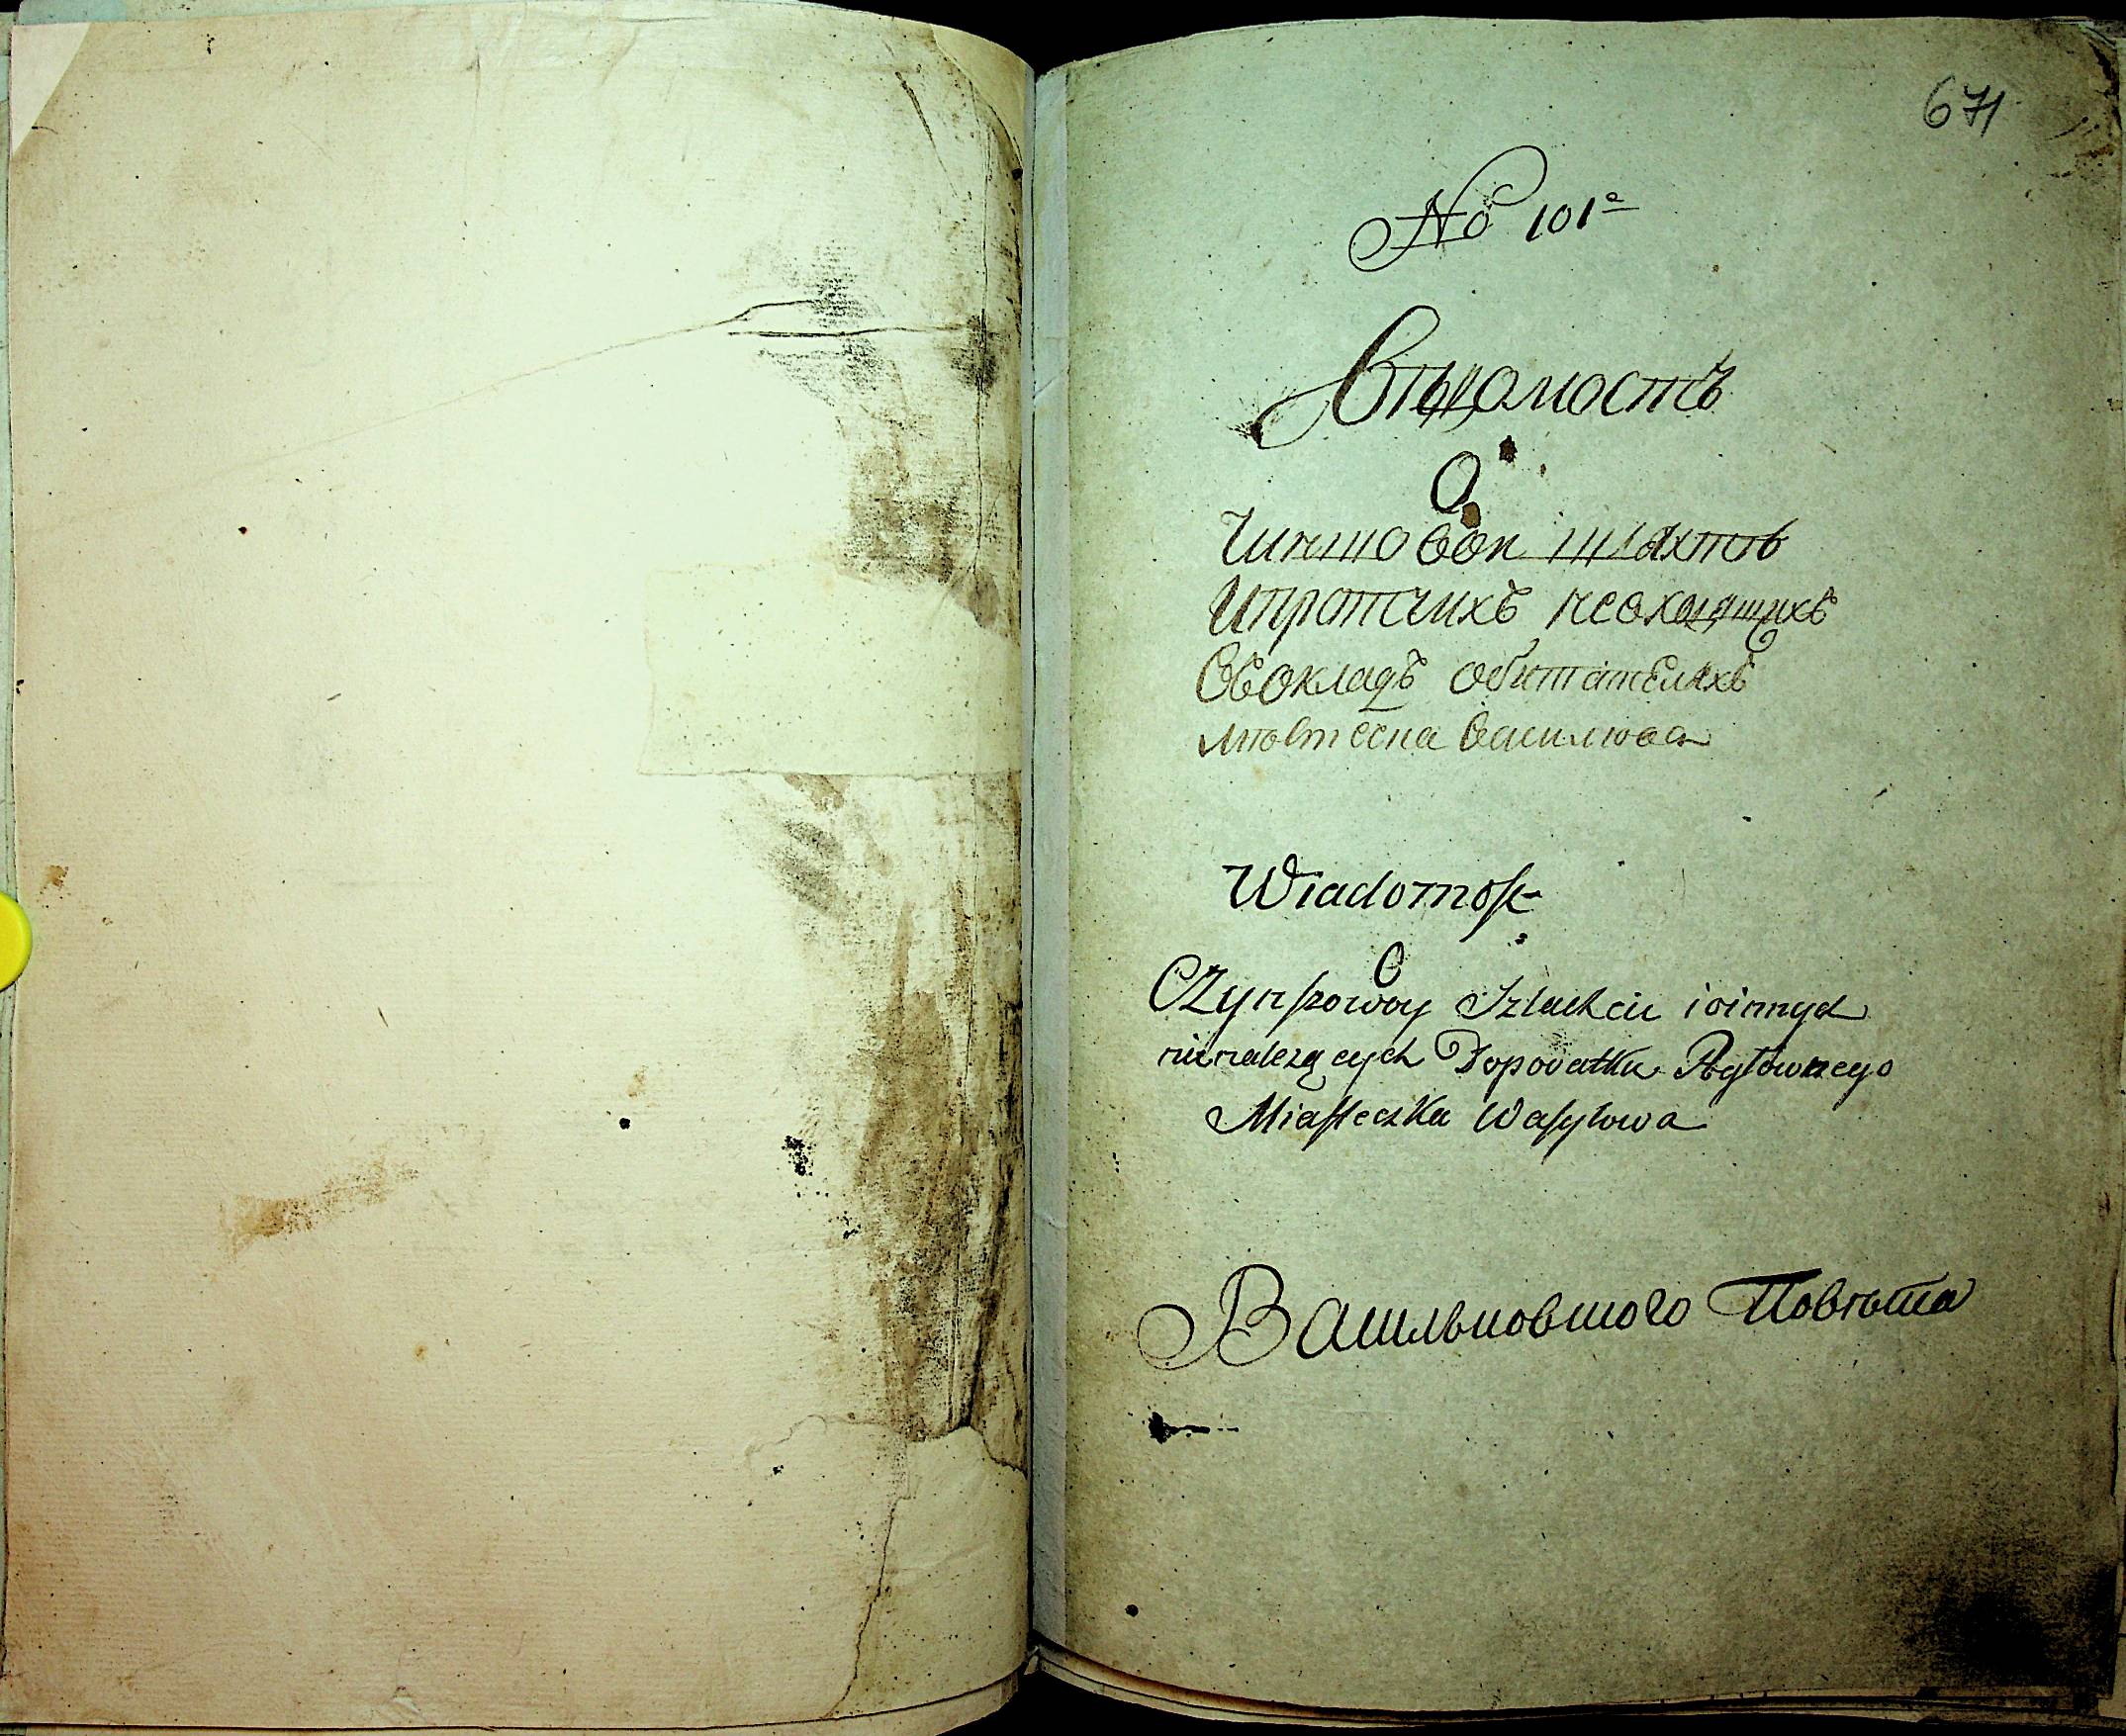 671
№ 101е
Вѣдомость
О
Чиншовой шляхтѣ
Ипротчихъ невходящихъ
Овокладъ обитателяхъ
Василиова
Wiadomość
O
Czynszowey Szlachcie i innych
nienależących Dopodatku Pogłównego
Miasteczka Wasylowa
Васильковского Повѣта